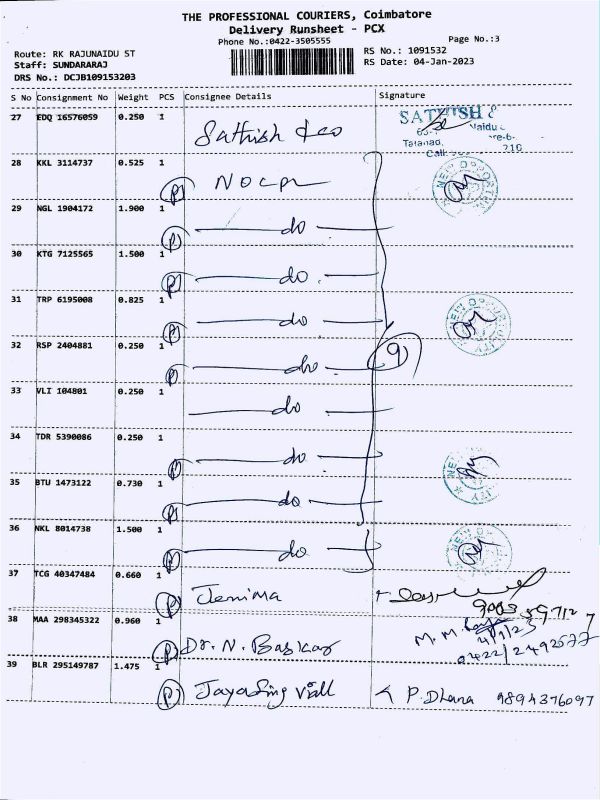 THE PROFESSIONAL COURIERS, Coimbatore
Delivery Runsheet - PCX
Phone No.:0422-3505555
Page No.:3
Route: RK RAJUNAIDU ST
RS No.: 1091532
Staff: SUNDARARAJ
RS Date: 04-Jan-2023
DRS No.: DCJB109153203
S No Consignment No Weight PCS Consignee Details Signature
27 EDQ 16576059 0.250 1 Sathish & co SATHISH &
28 KKL 3114737 0.525 1 P NOCPL
29 NGL 1904172 1.900 1 P do
30 KTG 7125565 1.500 1 P do
31 TRP 6195008 0.825 1 P do
32 RSP 2404881 0.250 1 P do 9
33 VLI 104801 0.250 1 do
34 TDR 5390086 0.250 1 P do
35 BTU 1473122 0.730 1 P do
36 NKL 8014738 1.500 1 P do
37 TCG 40347484 0.660 1 P Jemima
38 MAA 298345322 0.960 1 P Dr. N. Baskar M. M.
4/1/23
0422/2492577
39 BLR 295149787 1.475 1 P P. Dhana 9894376097